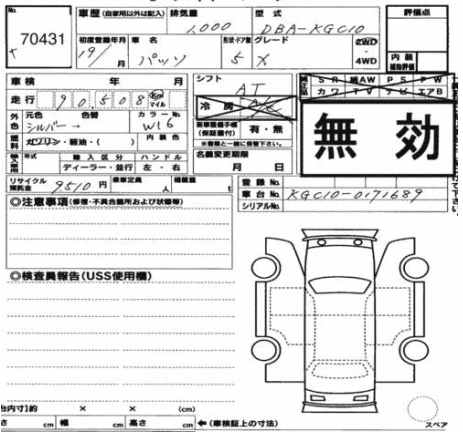 No.
車歴 (自家用以外は記入)
排気量
型式
評価点
70431
1,000
DBA-KGC10
初度登録年月
車名
形状・ドア数
グレード
2WD
・
4WD
19/
月
パッソ
5
X
内装
補助評価
車検
年
月
シフト
AT
SR
純AW
PS
PW
カワ
TV
ナビ
エアB
走行
90,508
Km
マイル
冷房
A/C
無効
外色
元色
色替
カラーNo.
シルバー→
W16
内装色
有・無
※書類と一緒に保管下さい。
ガソリン・軽油・( )
輸入区分
ハンドル
ディーラー・並行
左・右
名義変更期限
月
日
リサイクル
預託金
9510
円
乗車定員
人
積載量
t
登録No.
車台No.
KGC10-0171689
シリアルNo.
◎注意事項(修復・不具合箇所および状態等)
◎検査員報告(USS使用欄)
台内寸)約
×
×
(cm)
さ
cm
幅
cm
高さ
cm
←(車検証上の寸法)
スペア